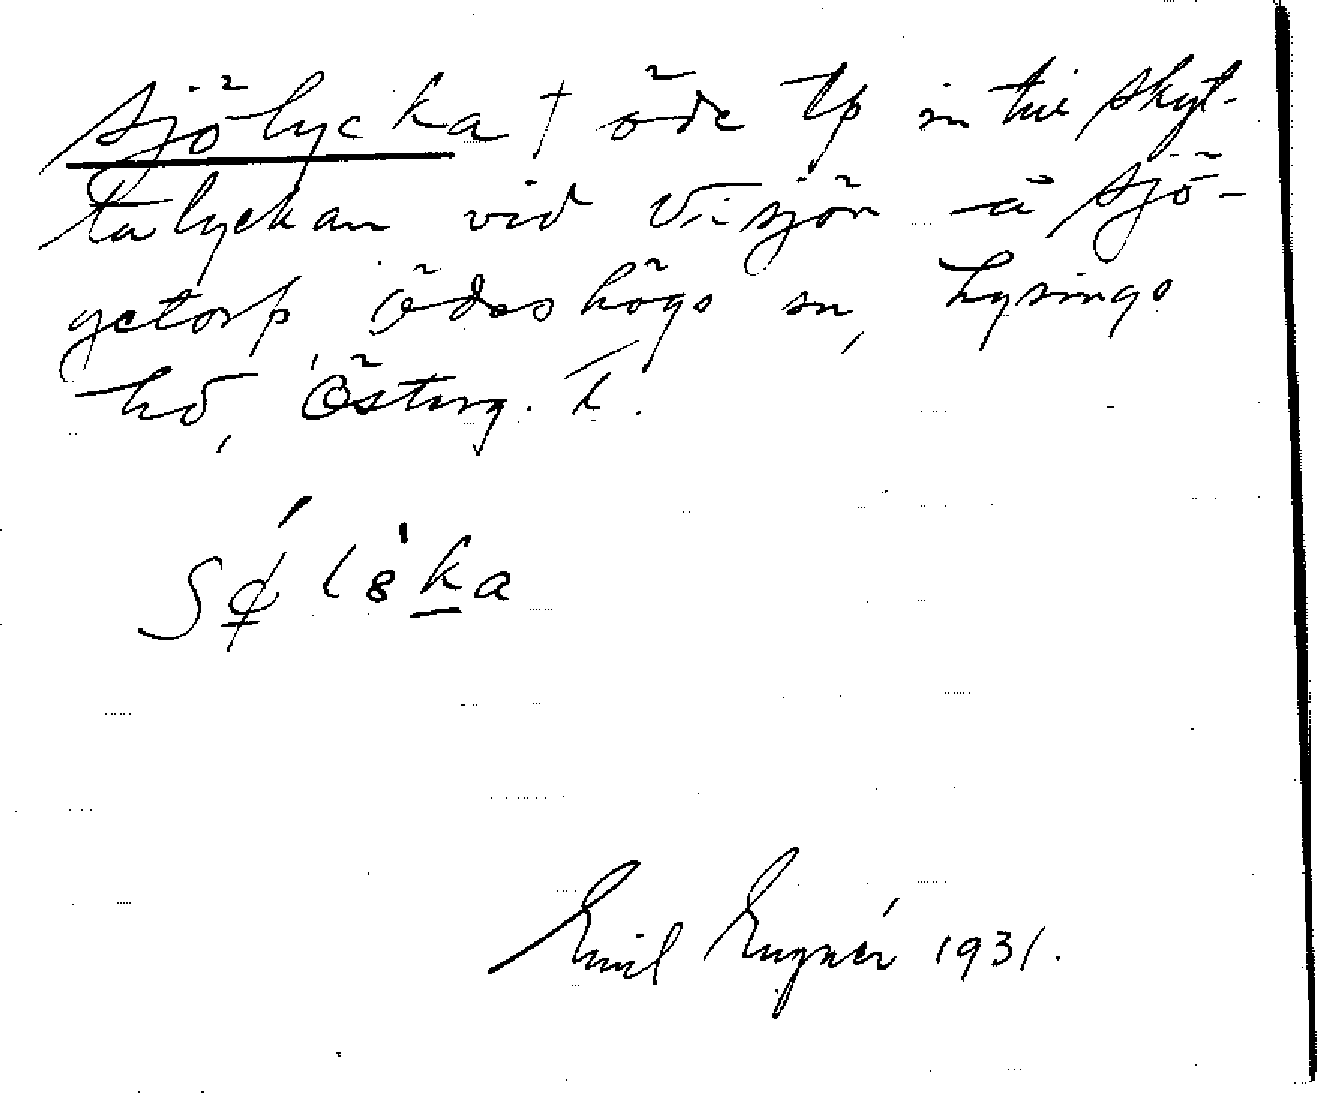 Sjölycka † öde tp intill Skyt-
talyckan vid Visjön å Sjö-
getorp Ödeshögs sn, Lysings
hd, Österg. l.
Emil Eugnér 1931.